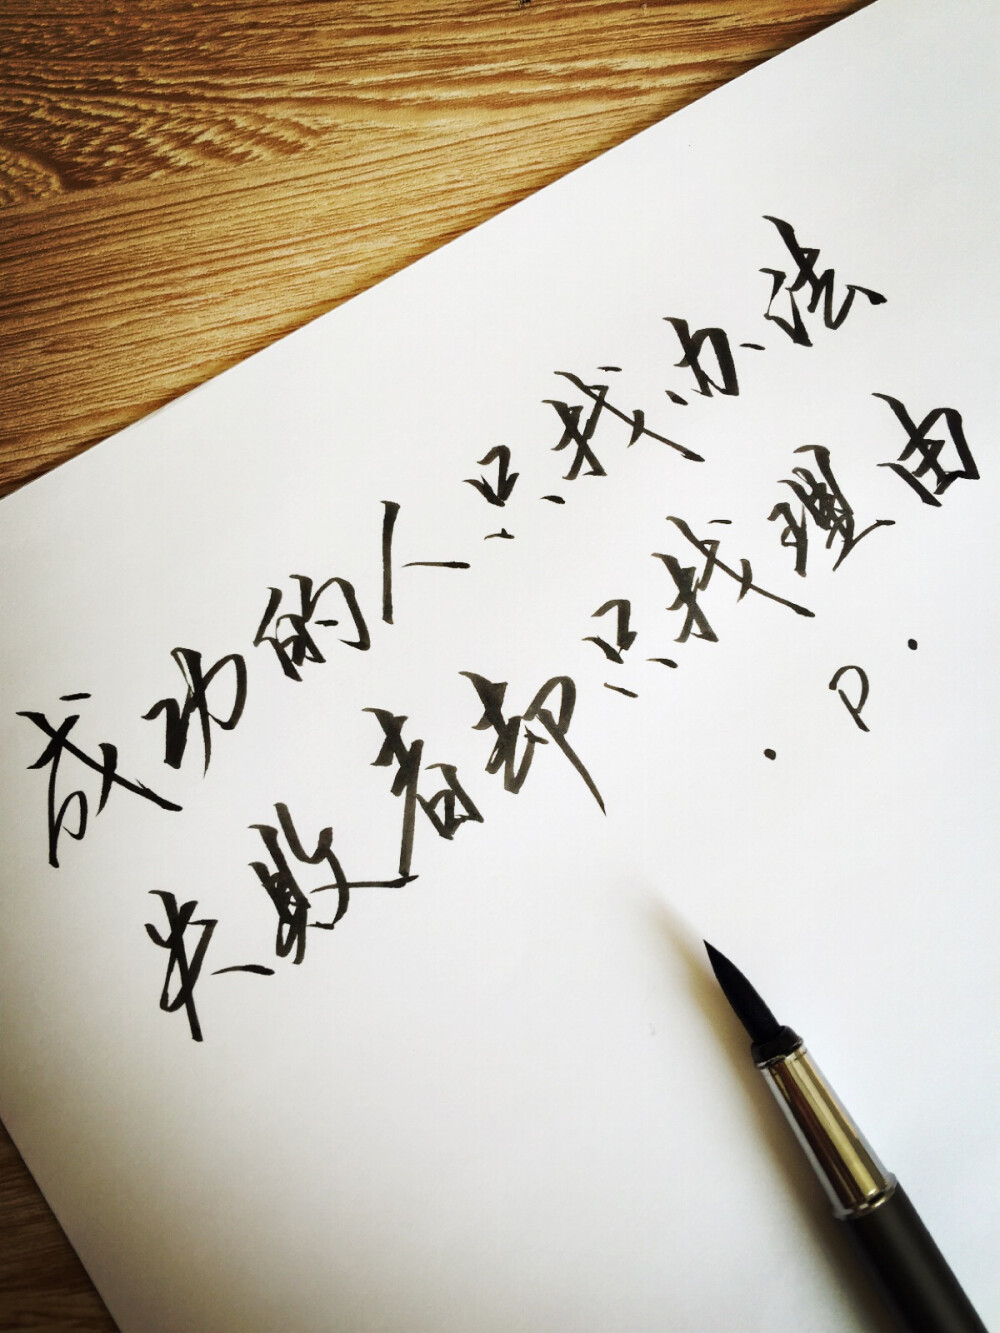 成功的人只找办法
失败者都只找理由
.P.